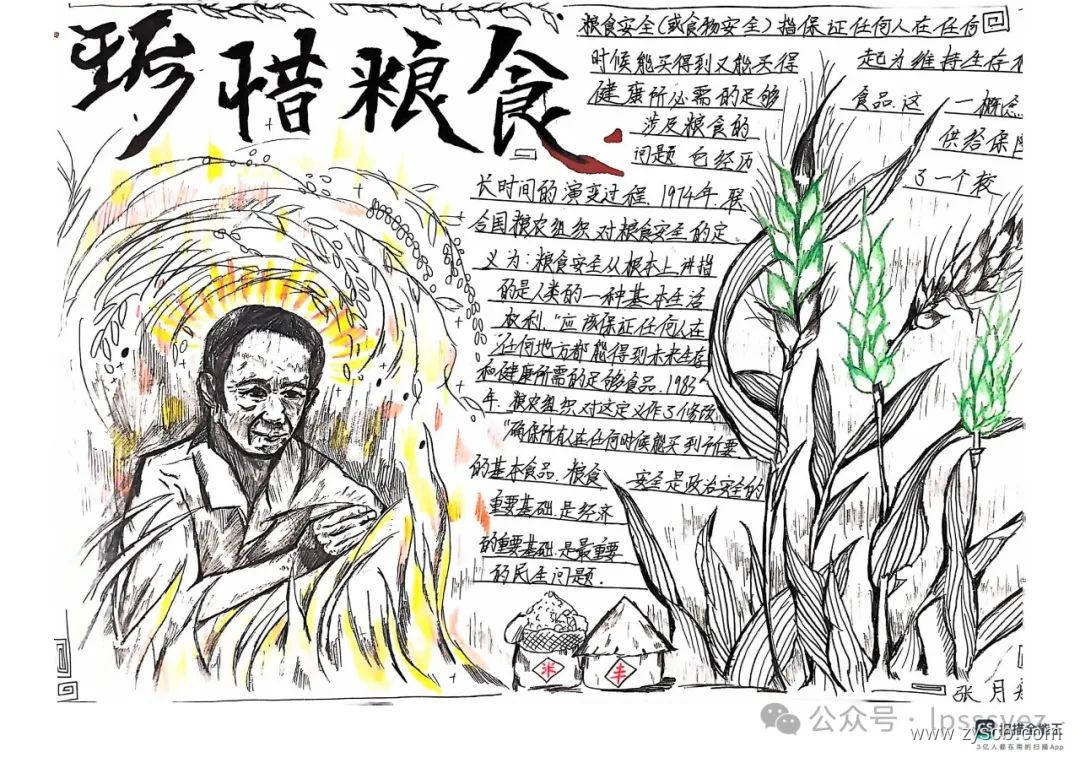 珍惜粮食
粮食安全(或食物安全)指保证任何人在任何
时候能买得到又能买得 起为维持生存
健康所必需的足够 食品.这 一概念
涉及粮食的 供给保
问题 它经历 了一个较
长时间的演变过程.1974年.联
合国粮农组织对粮食安全的定
义为:粮食安全从根本上讲指
的是人类的一种基本生活
权利."应该保证任何人在
任何地方都能得到未来生存
和健康所需的足够食品.1983
年.粮农组织对这定义作了修改
"确保所有人在任何时候能买到所要
的基本食品.粮食 安全是政治安全的
重要基础.是经济
的重要基础.是最重要
的民生问题.
米
丰
张月
公众号·lpsssyez
www.zyscb.com
扫描全能王
3亿人都在用的扫描App